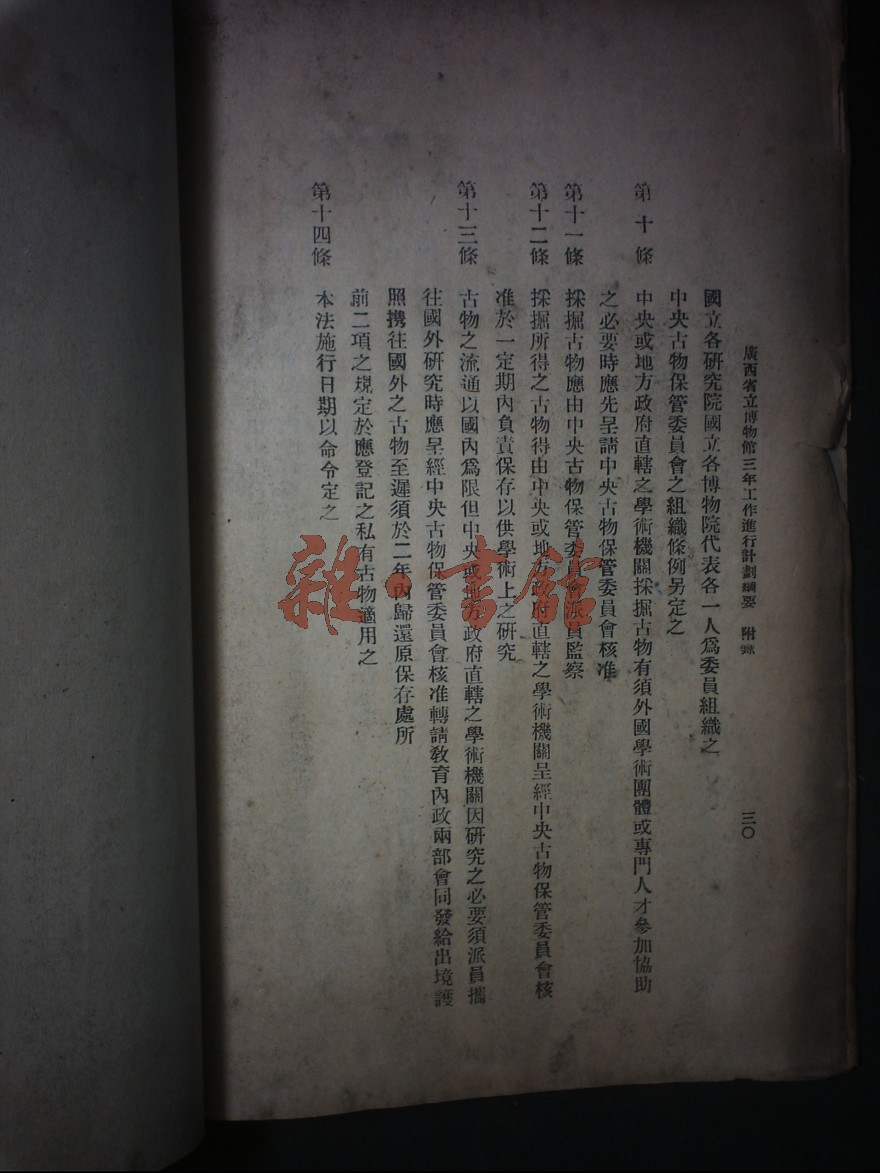 廣西省立博物館三年工作進行計劃綱要 附錄 三〇
國立各研究院國立各博物院代表各一人爲委員組織之
中央古物保管委員會之組織條例另定之
第十條 中央或地方政府直轄之學術機關採掘古物有須外國學術團體或專門人才參加協助
之必要時應先呈請中央古物保管委員會核准
第十一條 採掘古物應由中央古物保管委員會派員監察
第十二條 採掘所得之古物得由中央或地方政府直轄之學術機關呈經中央古物保管委員會核
准於一定期內負責保存以供學術上之研究
第十三條 古物之流通以國內爲限但中央或地方政府直轄之學術機關因研究之必要須派員攜
往國外研究時應呈經中央古物保管委員會核准轉請教育內政兩部會同發給出境護
照攜往國外之古物至遲須於二年內歸還原保存處所
前二項之規定於應登記之私有古物適用之
第十四條 本法施行日期以命令定之
雜·書館